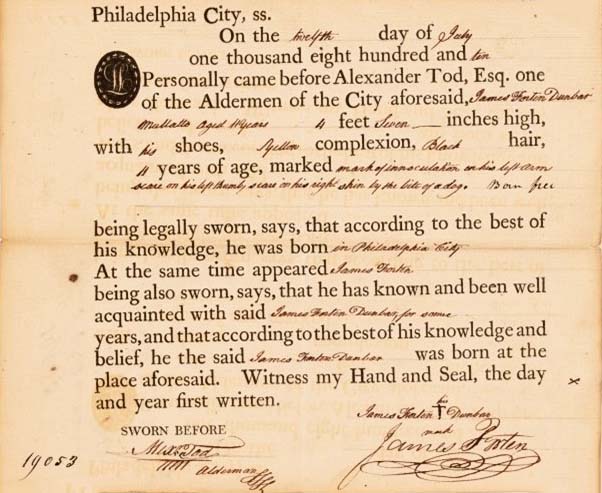 Philadelphia City, ss.
On the twelfth day of July
one thousand eight hundred and ten
Personally came before Alexander Tod, Esq. one
of the Aldermen of the City aforesaid, James Forten Dunbar
Mullatto Aged 11 years 4 feet Seven inches high,
with his shoes, Yellow complexion, Black hair,
11 years of age, marked mark of innoculation on his left arm
scare on his left thumb, scare on his right shin by the bite of a dog. Born free
being legally sworn, says, that according to the best of
his knowledge, he was born in Philadelphia City
At the same time appeared James Forten
being also sworn, says, that he has known and been well
acquainted with said James Forten Dunbar, for some
years, and that according to the best of his knowledge and
belief, he the said James Forten Dunbar was born at the
place aforesaid. Witness my Hand and Seal, the day
and year first written.
his
James Forten † Dunbar
mark
SWORN BEFORE
Alex Tod
James Forten
Alderman
19053